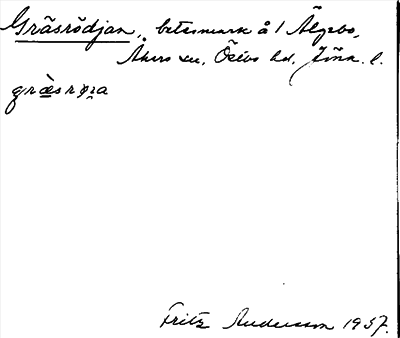 Gräsrödjan, betesmark å 1 Älgebo,
Åkers sn, Östbo hd, Jönk. l.
græsrøra
Fritz Andersson 1937.